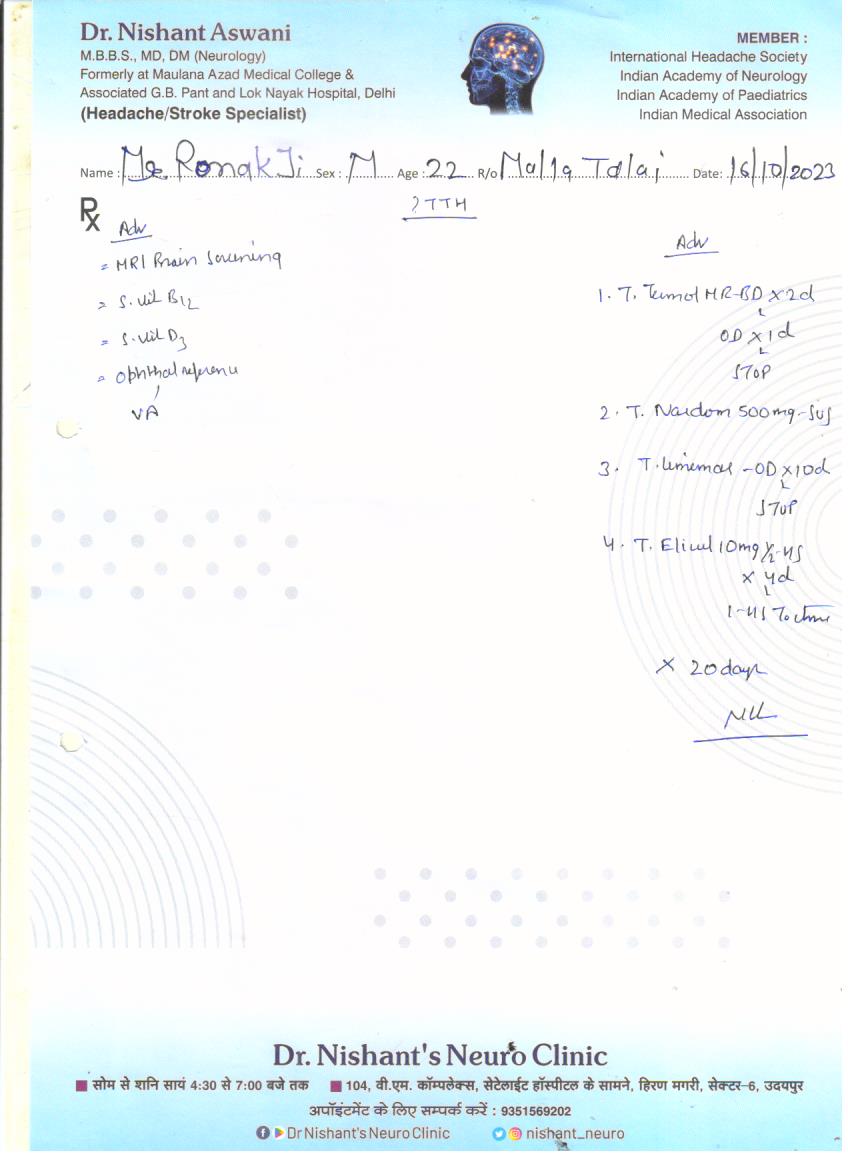 Dr. Nishant Aswani
M.B.B.S., MD, DM (Neurology)
Formerly at Maulana Azad Medical College &
Associated G.B. Pant and Lok Nayak Hospital, Delhi
(Headache/Stroke Specialist)
MEMBER :
International Headache Society
Indian Academy of Neurology
Indian Academy of Paediatrics
Indian Medical Association
Name : Mr. Ronak Ji Sex : M Age : 22 R/o Malla Talai Date: 16/10/2023
? TTH
Rx Adv
= MRI Brain Screening
= S. Vit B12
= S. Vit D3
= Ophthal reference
VA
Adv
1. T. MR-BD x 2d
OD x 1d
STOP
2. T. Naxdom 500mg - SOS
3. T. - OD x 10d
STOP
4. T. Eliwel 10mg 1/2-HS
x 4d
1-HS
x 20 days
Dr. Nishant's Neuro Clinic
सोम से शनि सायं 4:30 से 7:00 बजे तक 104, वी.एम. कॉम्पलेक्स, सेटेलाईट हॉस्पीटल के सामने, हिरण मगरी, सेक्टर-6, उदयपुर
अपॉइंटमेंट के लिए सम्पर्क करें : 9351569202
Dr Nishant's Neuro Clinic nishant_neuro